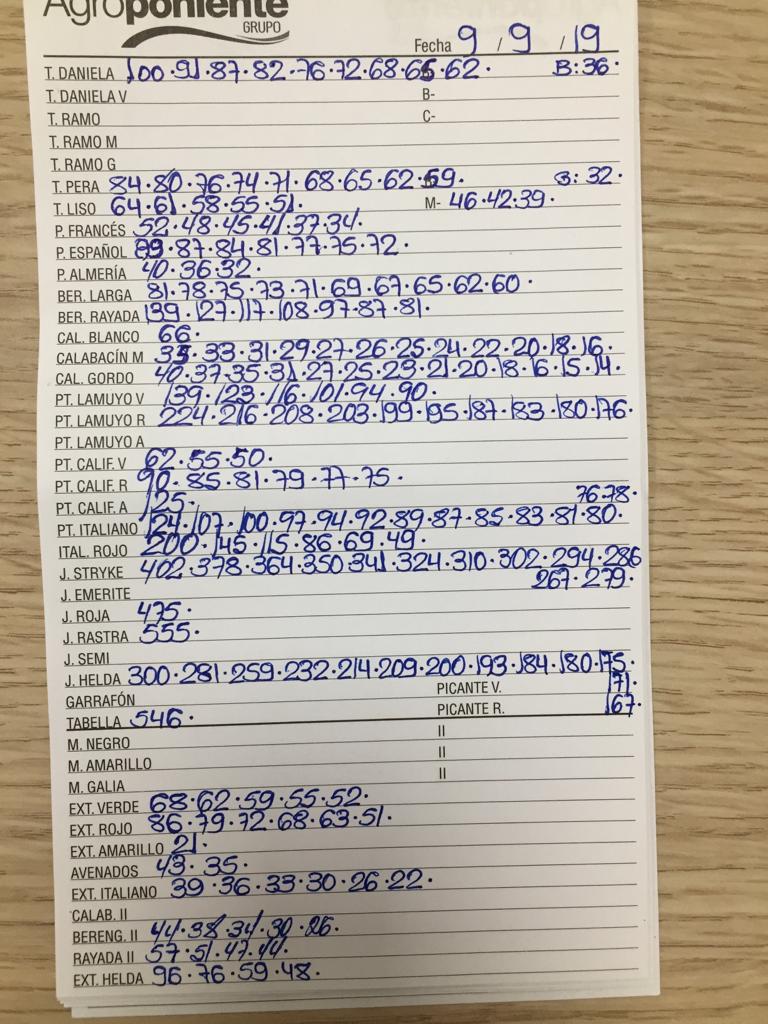 Agroponiente
GRUPO
Fecha 9 / 9 / 19
T. DANIELA 100·91·87·82·76·72·68·65·62· B: 36·
T. DANIELA V B-
T. RAMO C-
T. RAMO M
T. RAMO G
T. PERA 84·80·76·74·71·68·65·62·59· B: 32·
T. LISO 64·61·58·55·51· M- 46·42·39·
P. FRANCÉS 52·48·45·41·37·34·
P. ESPAÑOL 89·87·84·81·77·75·72·
P. ALMERÍA 40·36·32·
BER. LARGA 81·78·75·73·71·69·67·65·62·60·
BER. RAYADA 139·127·117·108·97·87·81·
CAL. BLANCO 66·
CALABACÍN M 35·33·31·29·27·26·25·24·22·20·18·16·
CAL. GORDO 40·37·35·31·27·25·23·21·20·18·16·15·14·
PT. LAMUYO V 139·123·116·101·94·90·
PT. LAMUYO R 224·216·208·203·199·195·187·183·180·176·
PT. LAMUYO A
PT. CALIF. V 62·55·50·
PT. CALIF. R 90·85·81·79·77·75·
PT. CALIF. A 125· 76·78·
PT. ITALIANO 124·107·100·97·94·92·89·87·85·83·81·80·
ITAL. ROJO 200·145·115·86·69·49·
J. STRYKE 402·378·364·350·341·324·310·302·294·286
J. EMERITE 267·279·
J. ROJA 475·
J. RASTRA 555·
J. SEMI
J. HELDA 300·281·259·232·214·209·200·193·184·180·175·
GARRAFÓN PICANTE V. 171·
TABELLA 546· PICANTE R. 167·
M. NEGRO II
M. AMARILLO II
M. GALIA II
EXT. VERDE 68·62·59·55·52·
EXT. ROJO 86·79·72·68·63·51·
EXT. AMARILLO 21·
AVENADOS 43·35·
EXT. ITALIANO 39·36·33·30·26·22·
CALAB. II
BERENG. II 44·38·34·30·26·
RAYADA II 57·51·47·44·
EXT. HELDA 96·76·59·48·